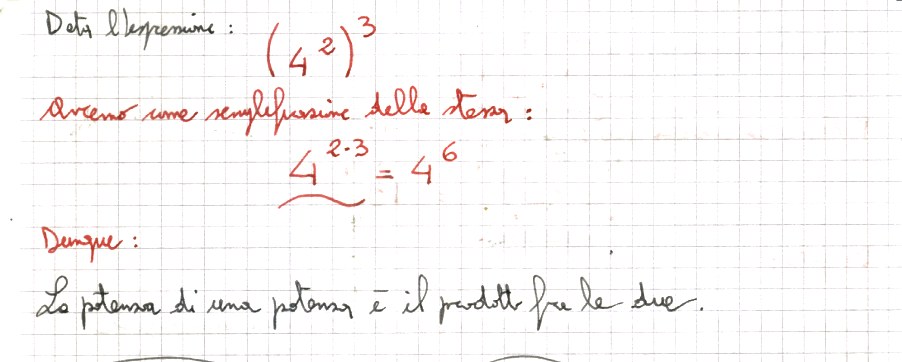 Data l'espressione : (4²)³
Avremo come semplificazione della stessa :
4²·³ = 4⁶
Dunque :
La potenza di una potenza è il prodotto fra le due .